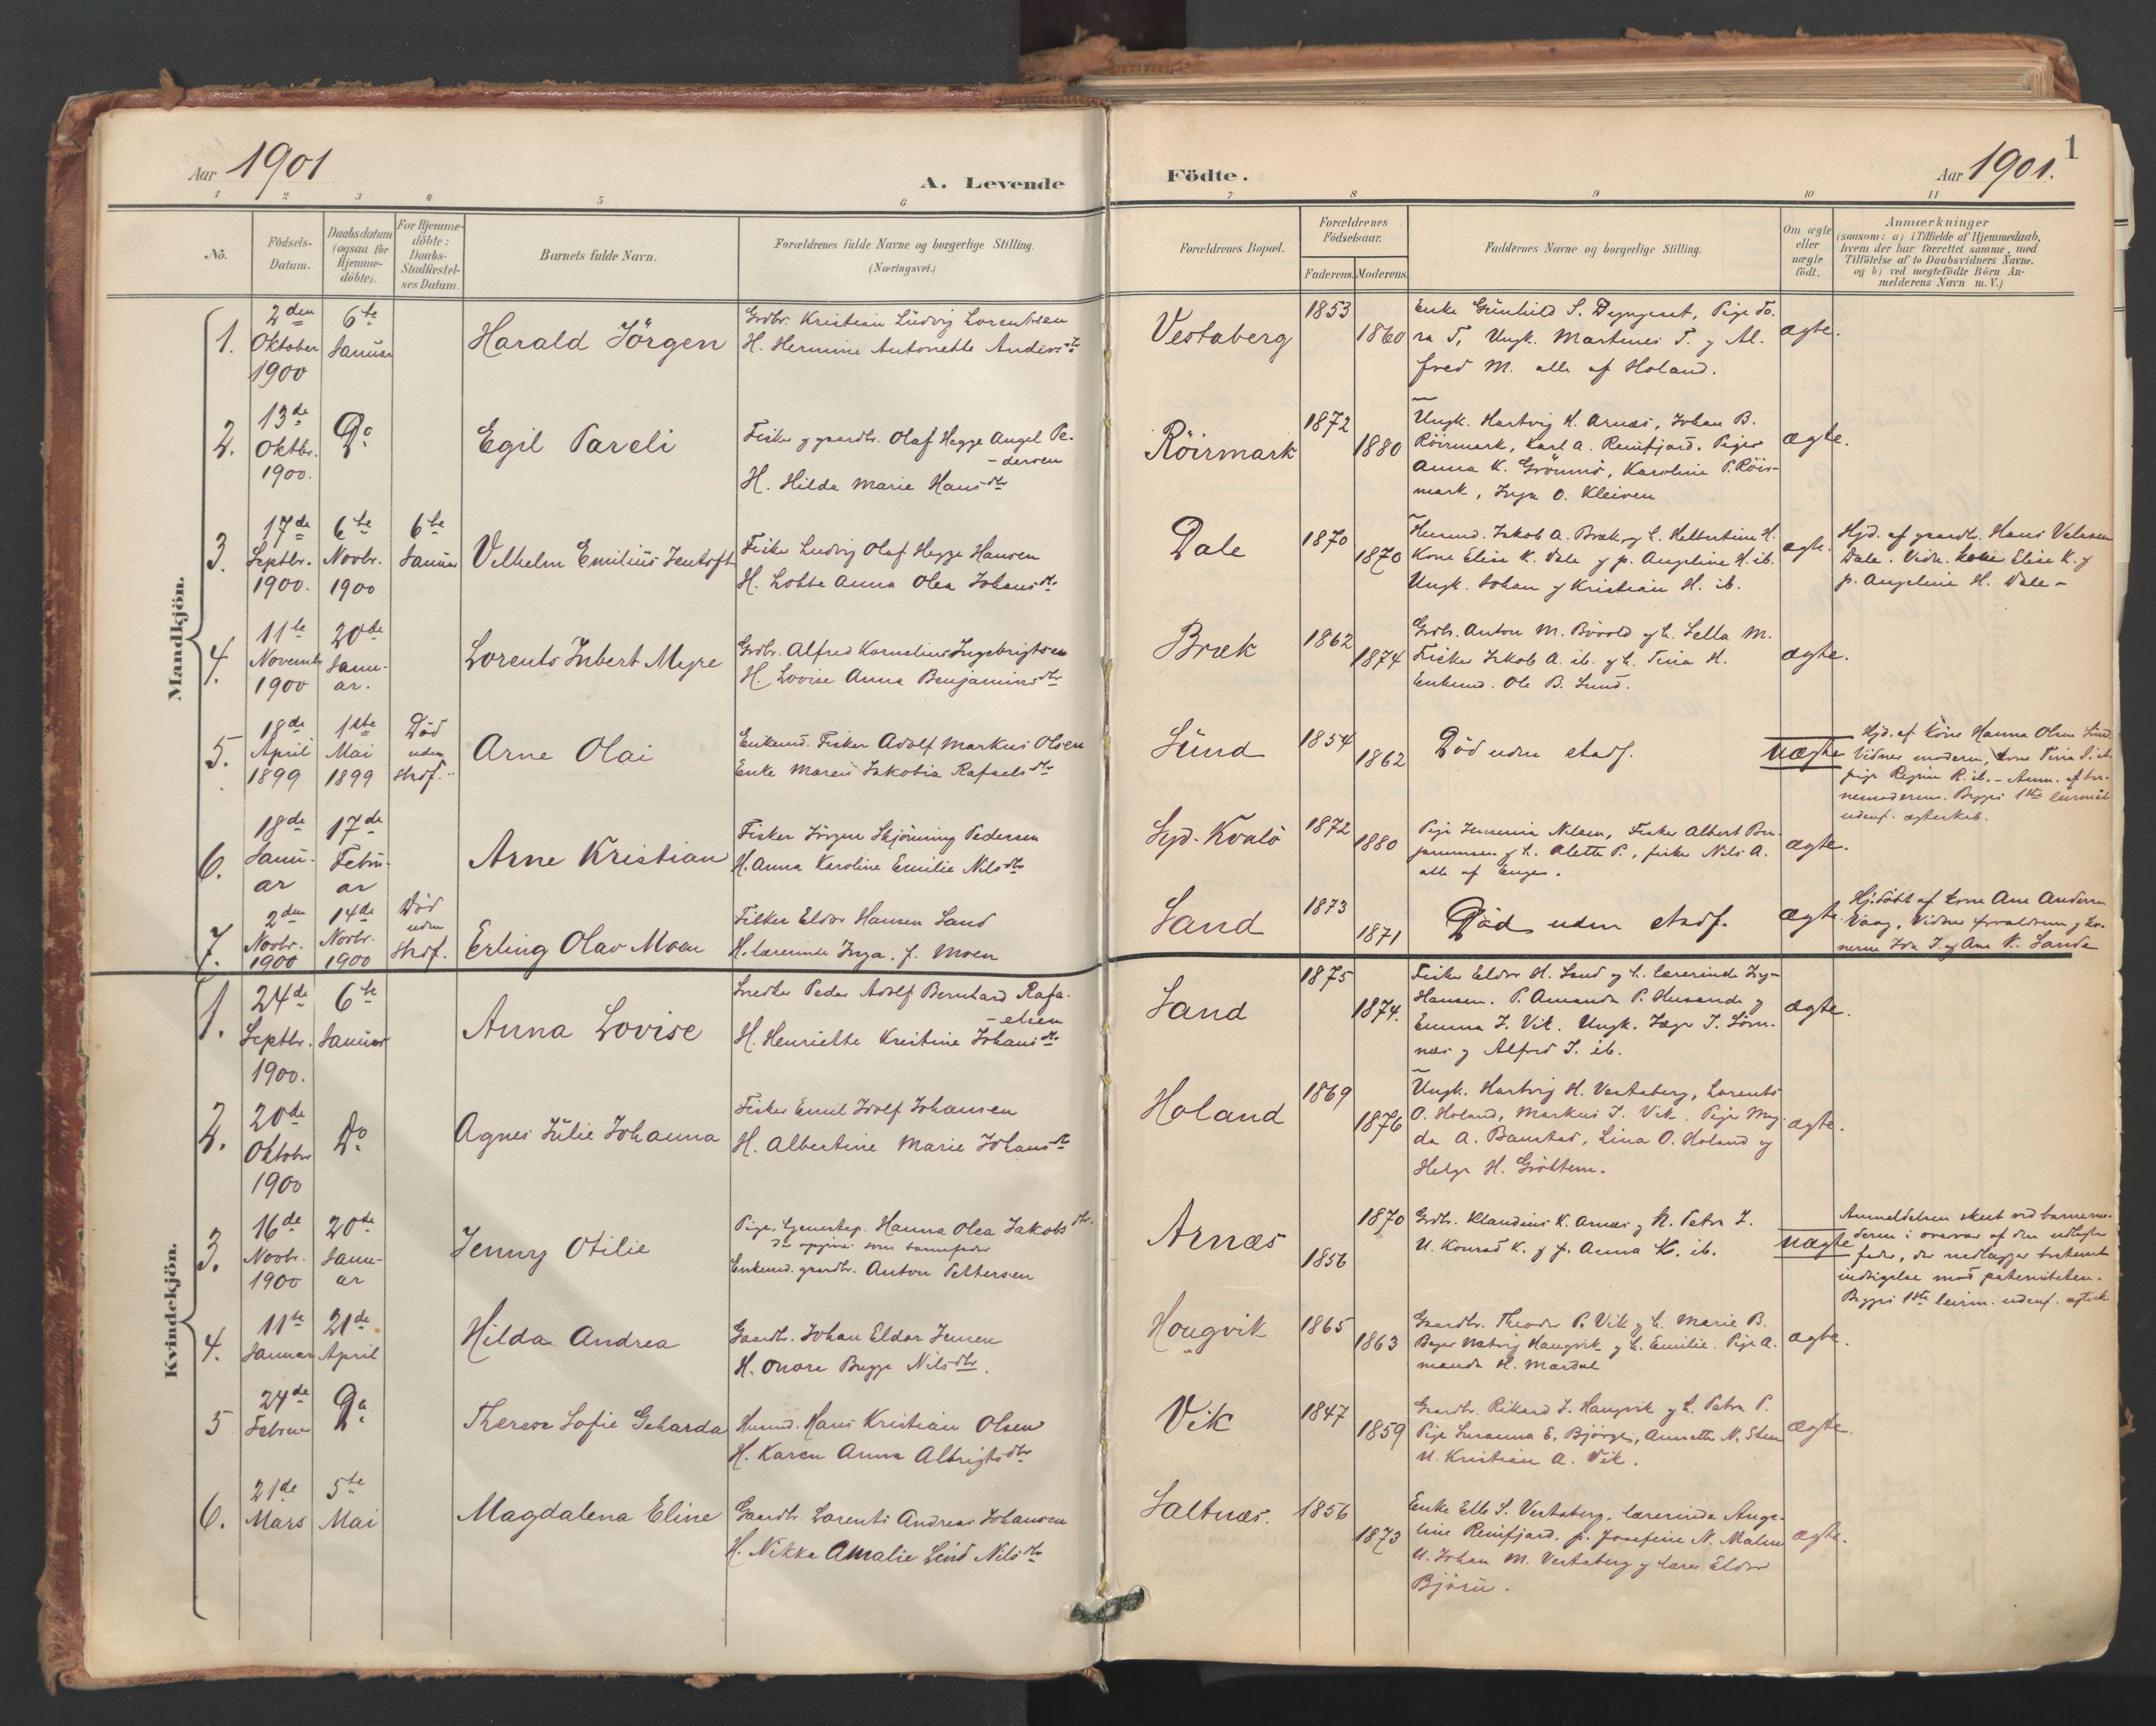 Aar 1901
A. Levende
Födte.
Aar 1901.
1
1 2 3 4 5 6 7 8 9 10 11
No.
Födsels-
Datum.
Daabsdatum
(ogsaa for
Hjemme-
döbte).
For Hjemme-
döbte:
Daabs-
Stadfæstel-
ses Datum.
Barnets fulde Navn.
Forældrenes fulde Navne og borgerlige Stilling.
(Næringsvei.)
Forældrenes Bopæl.
Forældrenes
Födselsaar.
Faderens. Moderens.
Faddernes Navne og borgerlige Stilling.
Om ægte
eller
uægte
födt.
Anmærkninger
(saasom: a) i Tilfælde af Hjemmedaab,
hvem der har forrettet samme, med
Tilföielse af to Daabsvidners Navne.
og b) ved uægtefödte Börn An-
melderens Navn m. V.)
Mandkjön.
1.
2den
Oktober
1900
6te
Januar
Harald Jörgen
Grdbr. Kristian Ludvig Lorentsen
H. Hermine Antonette Andersdtr
Vestaberg
1853
1860
Enke Gunhild S. Dypgeset, Pige To-
ra T, Ungk. Martines T. og Al-
fred M. alle af Holand.
ægte.
2.
13de
Oktbr.
1900.
Do
Egil Pareli
Fisker og gaardbr. Olaf Hegge Angel Pe-
-dersen
H. Hilda Marie Hansdtr
Röirmark
1872
1880
Ungk. Hartvig H. Arnæs, Johan B.
Röirmark, Karl A. Reinfjord. Piger
Anna K. Grönmo, Karoline P. Röir-
mark, Inga O. Kleiven
ægte.
3.
17de
Septbr.
1900.
6te
Novbr.
1900
6te
Januar
Vilhelm Emilius Jentoft
Fisker Ludvig Olaf Hegge Hansen
H. Lotte Anna Olea Johansdtr
Dale
1870
1870
Husmd. Jakob A. Bræk og h. Helbertine H.
Kone Elise K. Dale og p. Angeline H. ib.
Ungk. Johan og Kristian H. ib.
ægte.
Hjd. af gaardbr. Hans
Dale. Vidn. kone Elise K. og
p. Angeline H. Dale -
4.
11te
Novemb
1900
20de
Janu-
ar.
Lorents Inbert Meyre
Grdbr. Alfred Kornelius Ingebrigtsen
H. Lovise Anna Benjaminsdtr
Bræk
1862
1874
Grdbr. Anton M. Bövold og h. Sella M.
Fisker Jakob A. ib. og h. Tina H.
Enkemd. Ole B. Sund.
ægte.
5.
18de
April
1899
1ste
Mai
1899
Död
uden
stadf.
Arne Olai
Enkemd. Fisker Adolf Markus Olsen
Enke Maren Jakobia Rafaelsdtr
Sund
1854
1862
Död uden stadf.
uægte
Hjd. af kone Hanna Olsen Sund.
Vidner moderen, kone Tina S. ib.
pige Regine R. ib. - Anm. af bar-
nemoderen. Begges 1ste leiermål
udenf. ægteskab.
6.
18de
Janu-
ar
17de
Febru-
ar
Arne Kristian
Fisker Jörgen Skjönning Pedersen
H. Anna Karoline Emilie Nilsdtr
Sep. Kvalö
1872
1880
Pige Jensenia Nilsen, Fisker Albert Ben-
jaminsen og h. Alette P., fisker Nils A.
alle af Enges.
ægte.
7.
2den
Novbr.
1900
14de
Novbr.
1900
Död
uden
stadf.
Erling Olav Moen
Fisker Eldor Hansen Sand
H. lærerinde Inga, f. Moen
Sand
1873
1871
Död uden stadf.
ægte.
Hj.döbt af kone Ane Andersen
Vaag, Vidner forældrene og ko-
nerne Ida J. og Ane K. Sande
Kvindekjön.
1.
24de
Septbr.
1900.
6te
Januar
Anna Lovise
Snedker Peder Adolf Bernhard Rafa-
-elsen
H. Henriette Kristine Johansdtr
Sand
1875
1874.
Fisker Eldor H. Sand og h. lærerinde Inga
Hansen. P. Amanda P. Husande og
Emma J. Vik. Ungk. Jæger J. Sörn-
næs og Alfred J. ib.
ægte.
2.
20de
Oktober
1900
Do
Agnes Julie Johanna
Fisker Emil Adolf Johansen
H. Albertine Marie Johansdtr
Holand
1869
1876
Ungk. Hartvig H. Vestaberg, Lorents
O. Holand, Markus J. Vik. Pige Mag-
da A. Baustad, Lina O. Holand og
Helga H. Gröttem.
ægte.
3.
16de
Novbr.
1900
20de
Janu-
ar
Jenny Otilie
Pige, tjenestep. Hanna Olea Jakobsdtr.
Der opgives som barnefader
Enkemd. gaardbr. Anton Pettersen
Arnæs
1870
1856
Grdbr. Klaudius K. Arnæs og h. Petra J.
U. Konrad K. og p. Anna K. ib.
uægte
Anmeldelsen skeet ved barnemo-
deren i overvær af den udlagte
fader, der nedlægger bestemt
indsigelse mod paterniteten.
Begges 1ste leierm. udenf. ægtesk.
4.
11te
Januar
21de
April
Hilda Andrea
Gaardbr. Johan Eldor Jensen
H. Onore Bugge Nilsdtr.
Hougvik
1865
1863
Gaardbr. Theodor P. Vik og h. Marie B.
Hougvik og h. Emilie. Pige A-
manda H. Mardal
ægte.
5
24de
Februar
Do
Therese Sofie Geharda
Husmd. Hans Kristian Olsen
H. Karen Anna Albrigtsdtr
Vik
1847
1859
Gaardbr. Rikard J. Haugvik og h. Petra P.
Pige Susanna E. Björge, Annette N. Sten
U. Kristian A. Vik.
ægte.
6.
21de
Mars
5te
Mai
Magdalena Eline
Gaardbr. Lorents Andreas Johansen
H. Nikka Amalie Lind Nilsdtr
Saltnæs.
1856
1873
Enke Elle S. Vestaberg, lærerinde Ange-
line Reinfjord, p. Josefine N. Malm
U. Johan M. Vestaberg og lærer Eldor
Björu.
ægte.